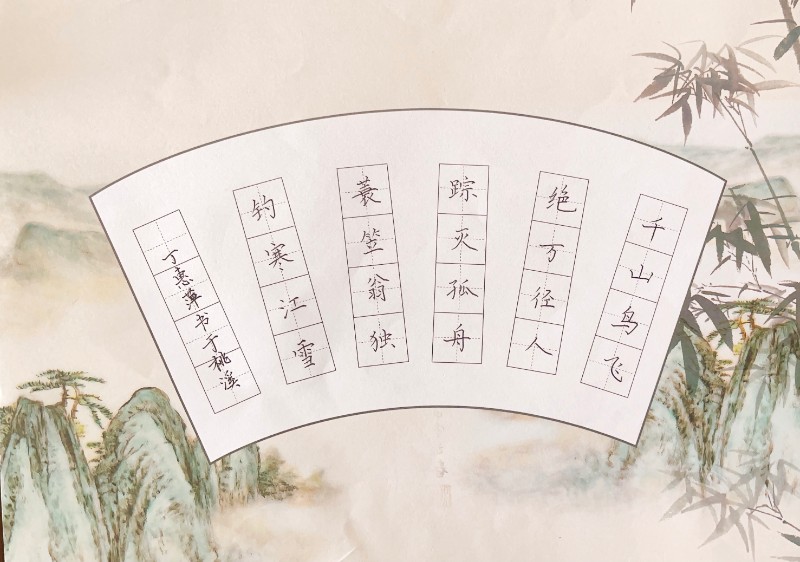 千山鸟飞
绝万径人
踪灭孤舟
蓑笠翁独
钓寒江雪
丁惠萍书于桃溪